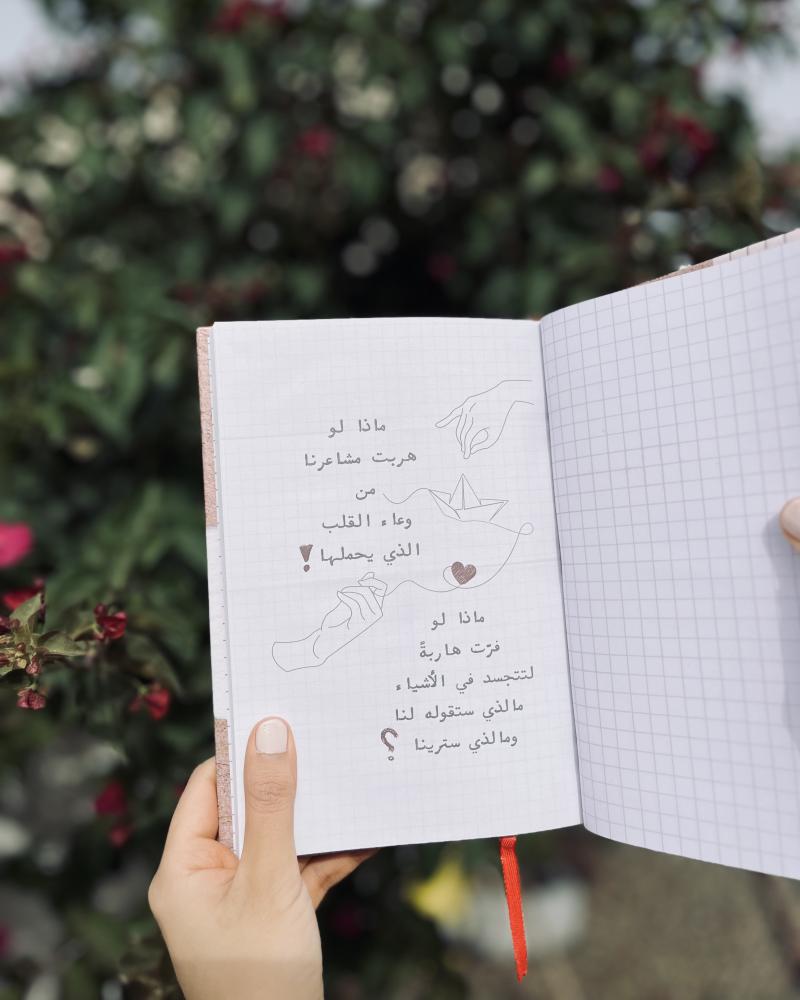 ماذا لو
هربت مشاعرنا
من
وعاء القلب
الذي يحملها!
ماذا لو
فرّت هاربةً
لتتجسد في الأشياء
مالذي ستقوله لنا
ومالذي سترينا ؟